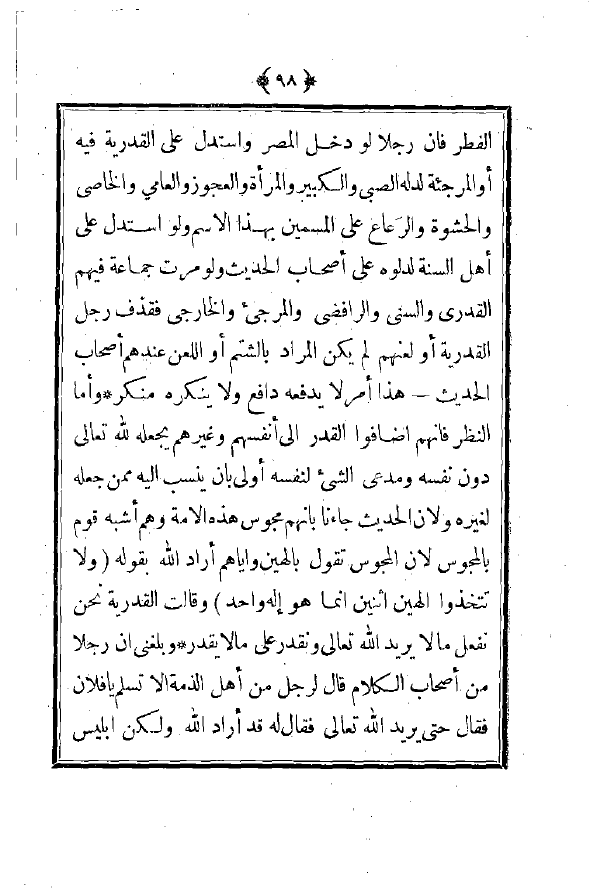 ﴿ ٩٨ ﴾
الفطر فان رجلا لو دخل المصر واستدل على القدرية فيه
أو المرجئة لدله الصبى والكبير والمرأة والعجوز والعامي والخاصى
والحشوة والرَعاع على المسمين بهذا الاسم ولو استدل على
أهل السنة لدلوه على أصحاب الحديث ولو مرت جماعة فيهم
القدرى والسنى والرافضى والمرجئ والخارجى فقذف رجل
القدرية أو لعنهم لم يكن المراد بالشتم أو اللعن عندهم أصحاب
الحديث — هذا أمر لا يدفعه دافع ولا ينكره منكر * وأما
النظر فانهم اضافوا القدر الى أنفسهم وغيرهم يجعله لله تعالى
دون نفسه ومدعى الشئ لنفسه أولى بان ينسب اليه ممن جعله
لغيره ولان الحديث جاءنا بانهم مجوس هذه الامة وهم أشبه قوم
بالمجوس لان المجوس تقول بالهين واياهم أراد الله بقوله ( ولا
تتخذوا الهين اثنين انما هو إله واحد ) وقالت القدرية نحن
نفعل ما لا يريد الله تعالى ونقدر على ما لا يقدر * وبلغنى ان رجلا
من أصحاب الكلام قال لرجل من أهل الذمة الا تسلم يا فلان
فقال حتى يريد الله تعالى فقال له قد أراد الله ولكن ابليس